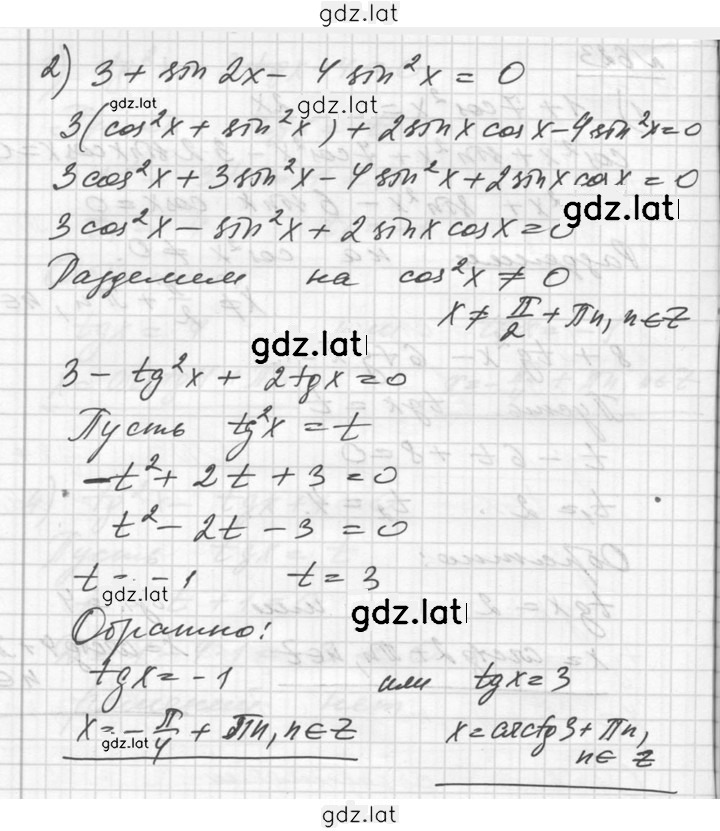 gdz.lat
2) 3 + sin 2x - 4 sin²x = 0
gdz.lat gdz.lat
3(cos²x + sin²x) + 2sinx cosx - 4sin²x = 0
3cos²x + 3sin²x - 4sin²x + 2sinx cosx = 0
gdz.lat
3cos²x - sin²x + 2sinx cosx = 0
Разделим на cos²x ≠ 0
x ≠ π/2 + πn, n ∈ Z
gdz.lat
3 - tg²x + 2tgx = 0
Пусть tg²x = t
-t² + 2t + 3 = 0
t² - 2t - 3 = 0
t = -1 t = 3
gdz.lat gdz.lat
Обратно:
tgx = -1 или tgx = 3
x = -π/4 + πn, n ∈ Z x = arctg3 + πn,
n ∈ Z
gdz.lat
gdz.lat